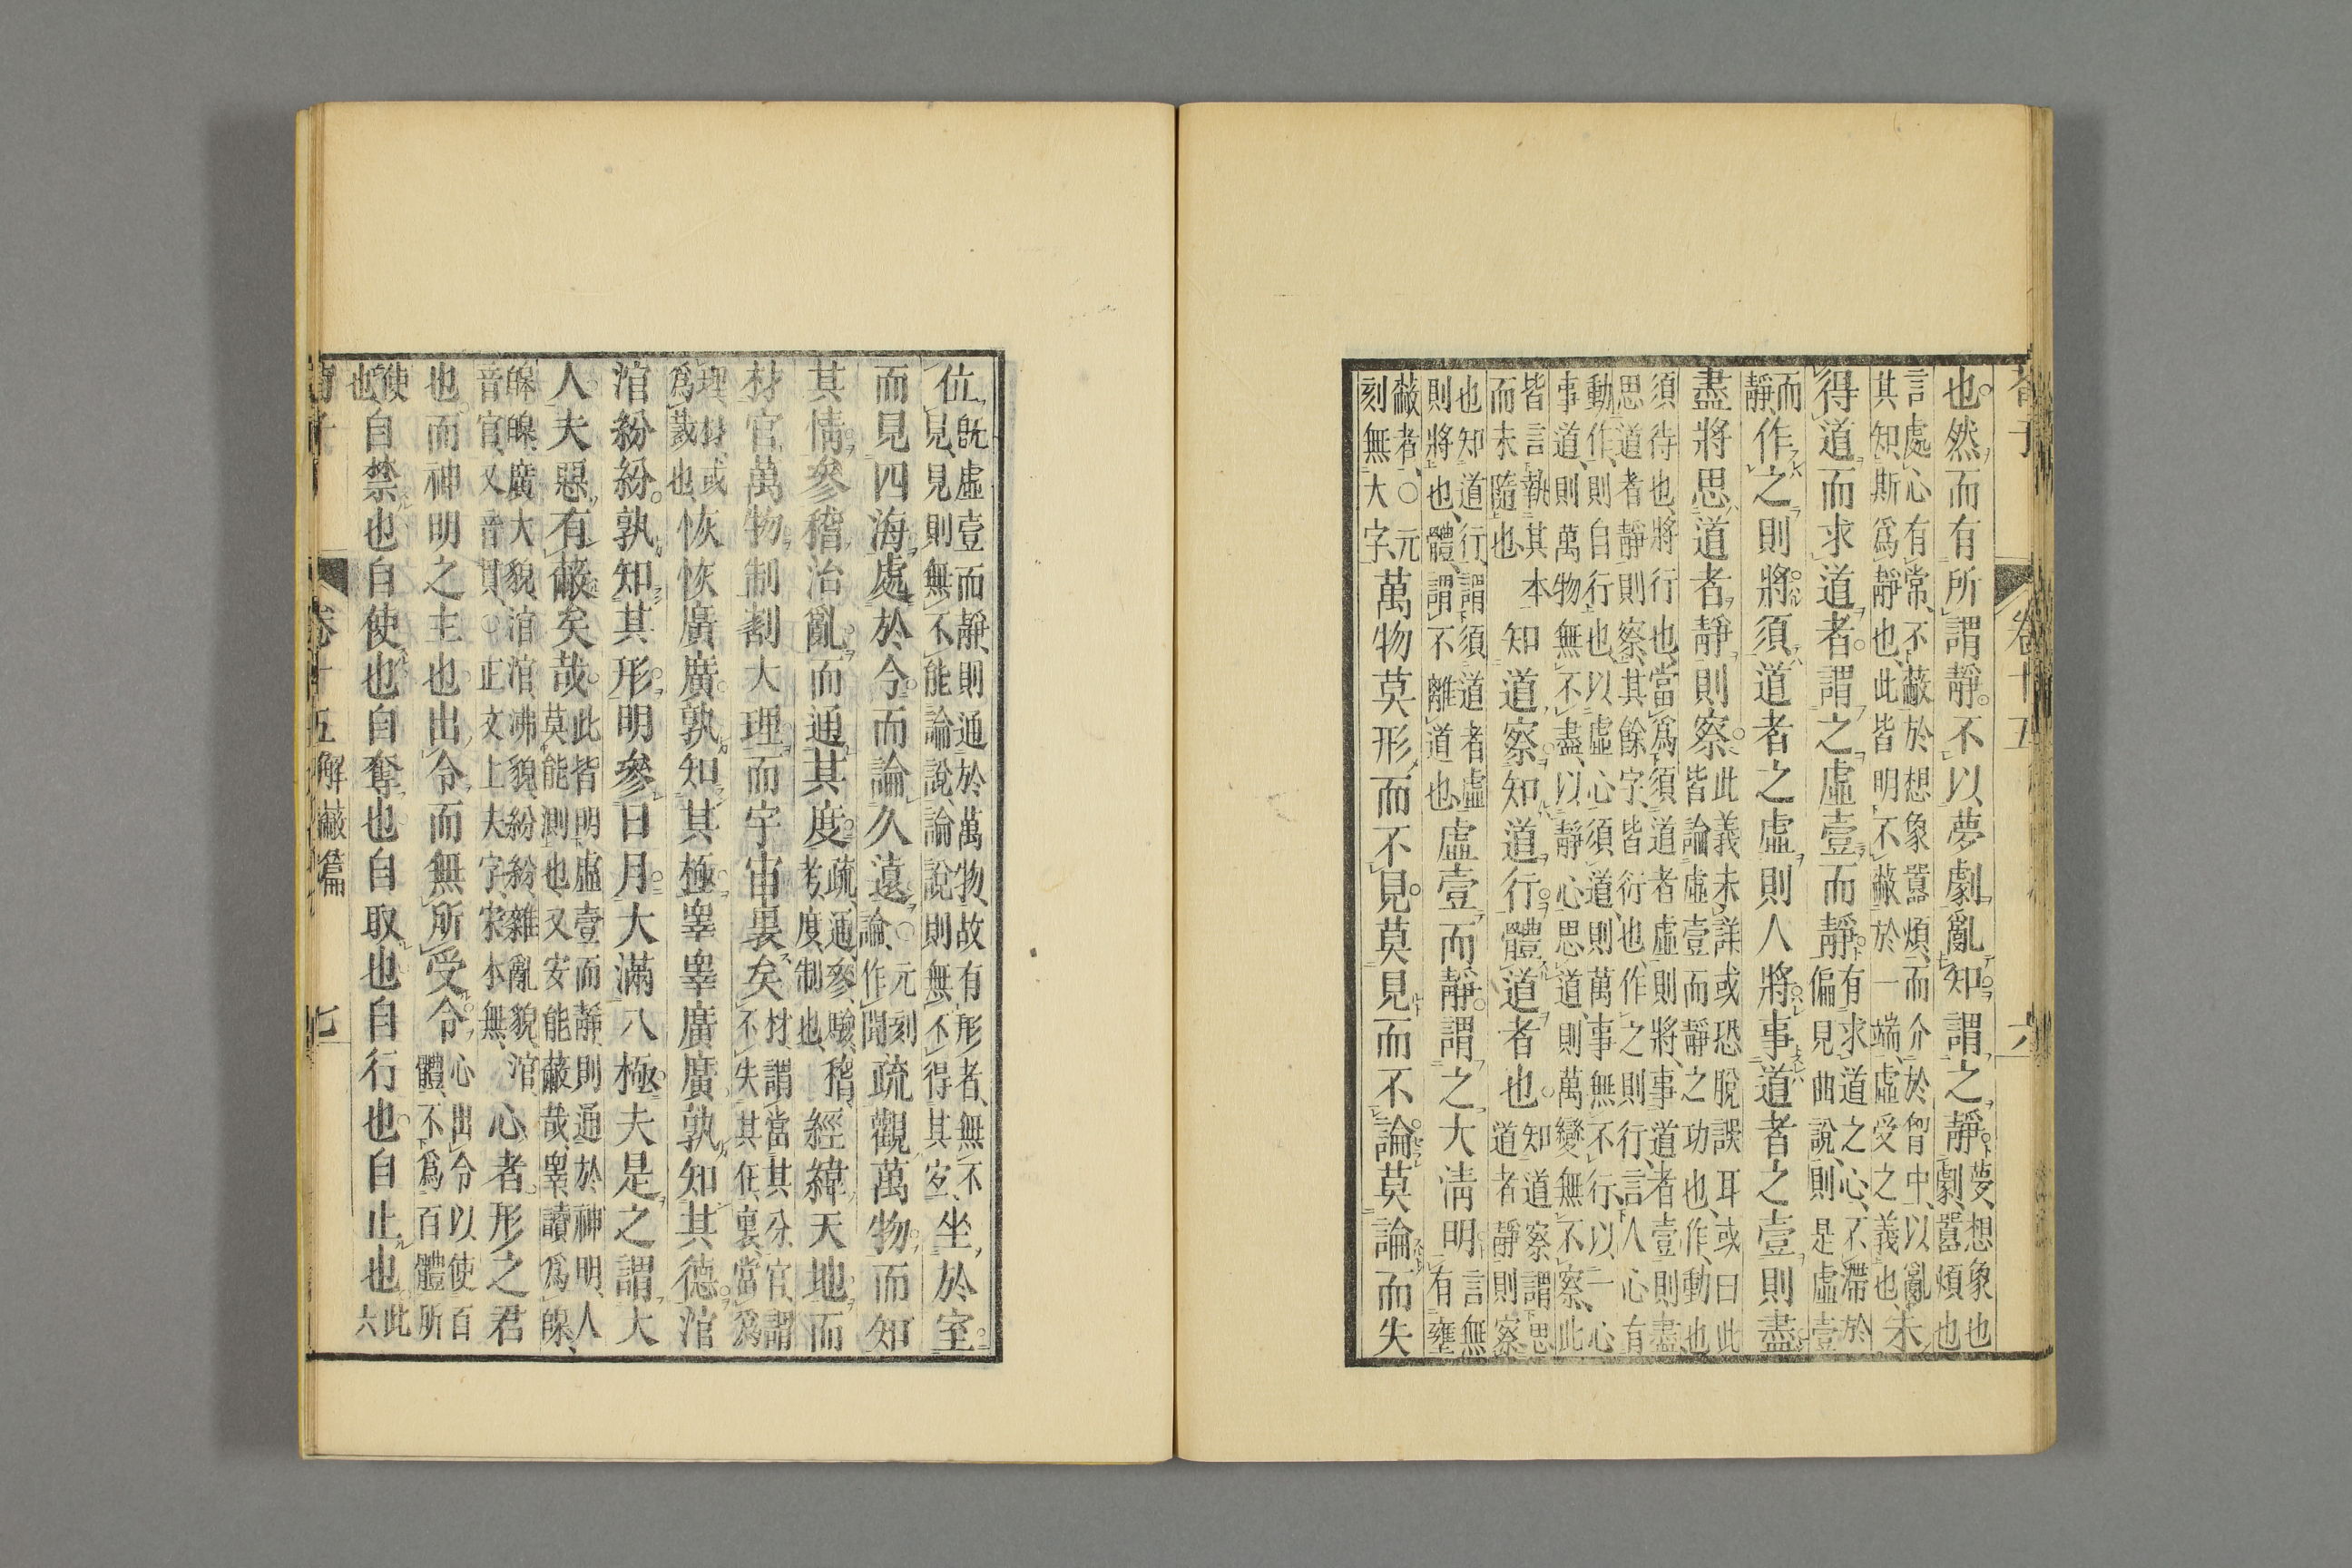 也然而有所謂靜不以夢劇亂知謂之靜夢想象也劇囂煩也
言處心有常不蔽於想象囂煩而介於胷中以亂其知斯爲靜也此皆明不蔽於一端虛受之義也未
得道而求道者謂之虛壹而靜有求道之心不滯於偏見曲說則是虛壹
而靜作之則將須道者之虛則人將事道者之壹則盡
盡將思道者靜則察此義未詳或恐脫誤耳或曰此皆論虛壹而靜之功也作動也
須待也將行也當爲須道者虛則將事道者壹則盡思道者靜則察其餘字皆衍也作之則行言人心有
動作則自行也以虛心須道則萬事無不行以一心事道則萬物無不盡以靜心思道則萬變無不察此
皆言執其本而未隨也知道察知道行體道者也知道察謂思道者靜則察
也知道行謂須道者虛則將也體謂不離道也虛壹而靜謂之大淸明言無有壅
蔽者○元刻無大字萬物莫形而不見莫見而不論莫論而失
位既虛壹而靜則通於萬物故有形者無不見見則無不能論說論說則無不得其宜坐於室
而見四海處於今而論久遠○元刻論作聞疏觀萬物而知
其情參稽治亂而通其度疏通參驗稽考度制也經緯天地而
材官萬物制割大理而宇宙裏矣材謂當其分官謂不失其任裏當爲
理材或爲裁也恢恢廣廣孰知其極睪睪廣廣孰知其德涫
涫紛紛孰知其形明參日月大滿八極夫是之謂大
人夫惡有蔽矣哉此皆明虛壹而靜則通於神明人莫能測也又安能蔽哉睪讀爲皞
皞皞廣大貌涫涫沸貌紛紛雜亂貌涫音官又音貫○正文上夫字宋本無心者形之君
也而神明之主也出令而無所受令心出令以使百體不爲百體所
使也自禁也自使也自奪也自取也自行也自止也此六
卷十五解蔽篇 七